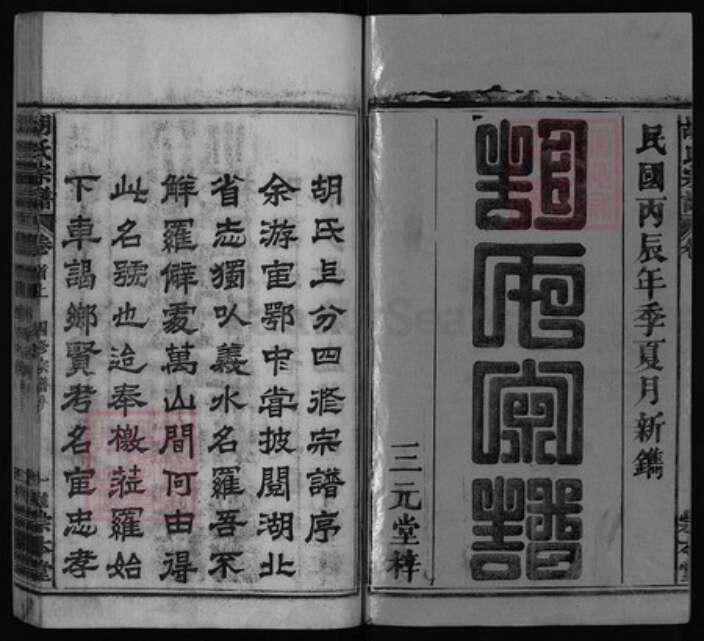 民國丙辰年季夏月新鐫
胡氏宗譜
三元堂梓
胡氏三分四修宗譜序
余游宦鄂中嘗披閱湖北
省志獨以義水名羅吾不
解羅僻處萬山間何由得
此名號也迨奉檄蒞羅始
下車謁鄉賢考名宦忠孝
胡氏宗譜
卷首上
四修宗譜序